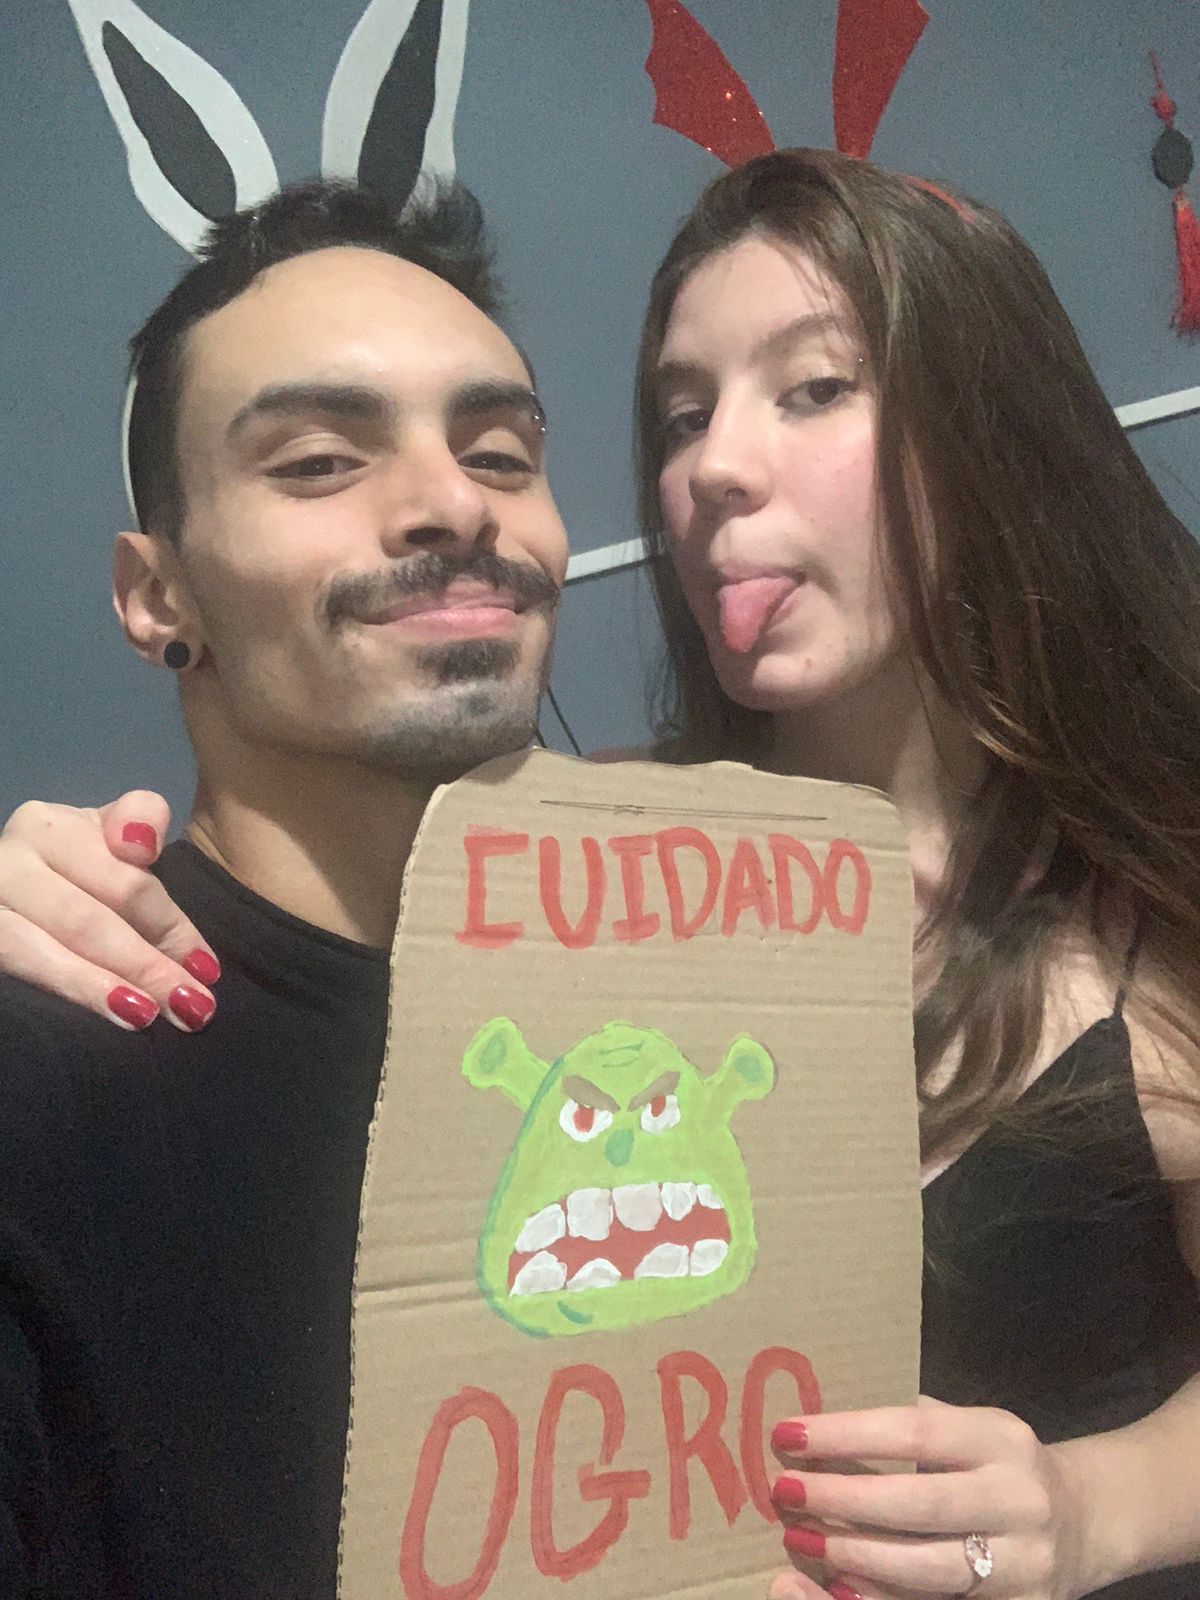 CUIDADO
OGRO